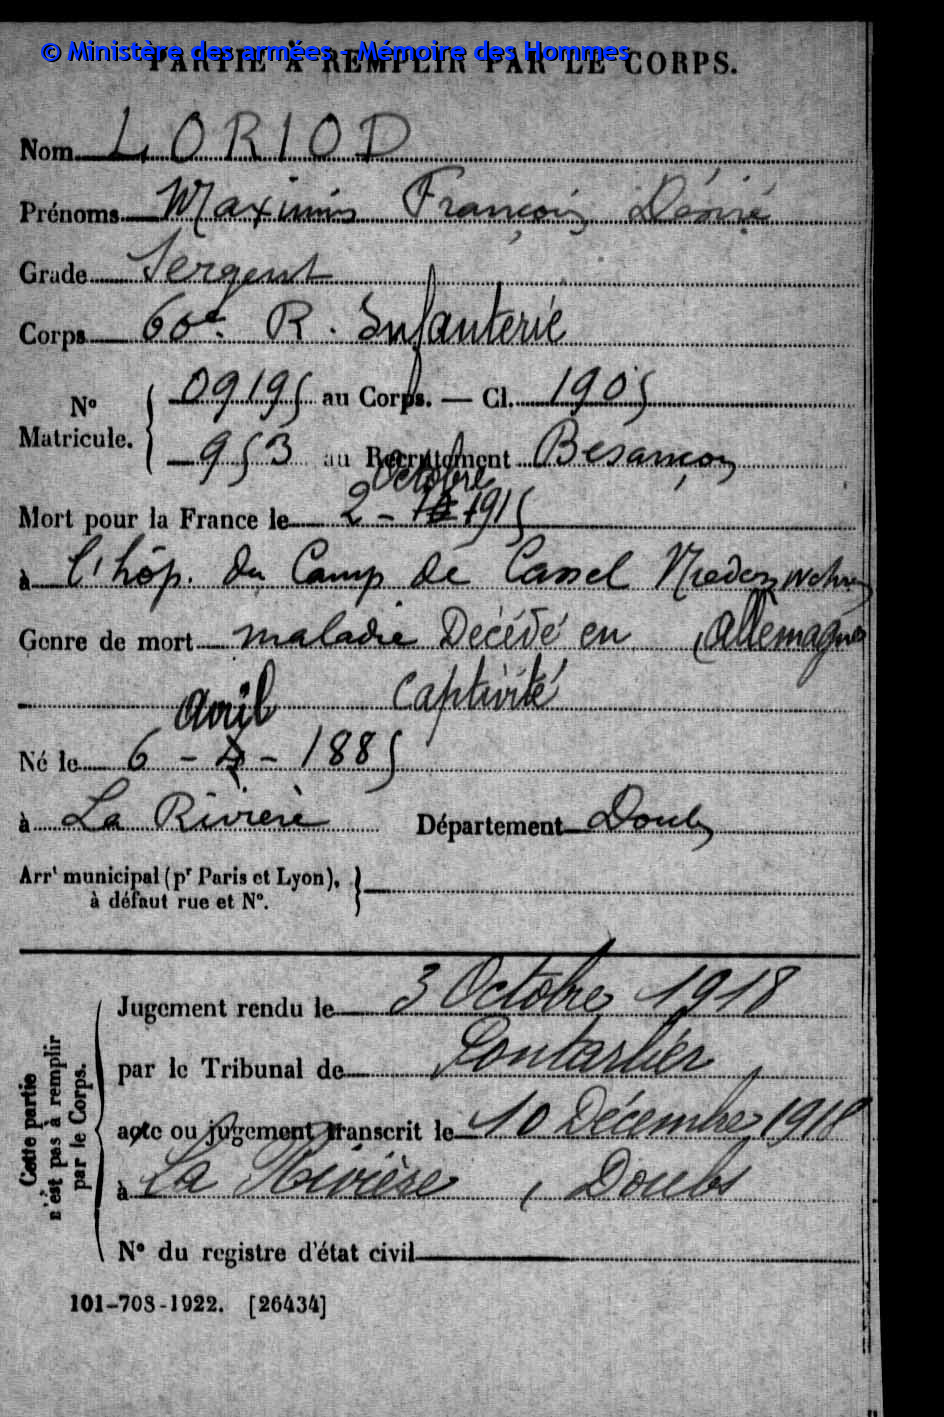 © Ministère des armées - Mémoire des Hommes
PARTIE À REMPLIR PAR LE CORPS.
Nom LORIOD
Prénoms Maximin François Désiré
Grade Sergent
Corps 60e R. Infanterie
No Matricule. { 09195 au Corps. — Cl. 1905
953 au Recrutement Besançon
Octobre
Mort pour la France le 2 - 10 1915
à l'hôp. du Camp de Cassel
Genre de mort maladie Décédé en Allemagne
Captivité
avril
Né le 6 - 4 - 1885
à La Rivière Département Doubs
Arrt municipal (pr Paris et Lyon), à défaut rue et No. }
Cette partie n'est pas à remplir par le Corps.
Jugement rendu le 3 Octobre 1918
par le Tribunal de Pontarlier
acte ou jugement transcrit le 10 Décembre 1918
à La Rivière, Doubs
No du registre d'état civil
101-708-1922. [26434]